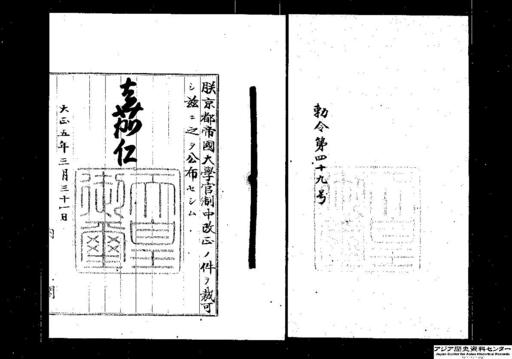 勅令第四十九号
朕京都帝國大學官制中改正ノ件ヲ裁可
シ茲ニ之ヲ公布セシム
嘉仁
天皇
御璽
大正五年三月三十一日
内閣
アジア歴史資料センター
Japan Center for Asian Historical Records